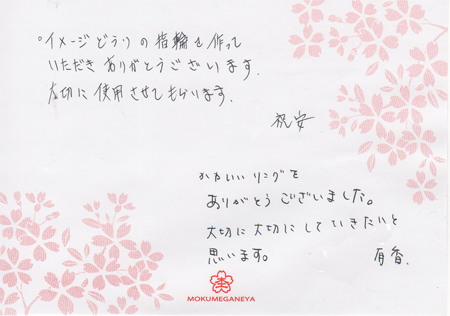 ○イメージどうりの指輪を作って
いただきありがとうございます.
大切に使用させてもらいます.
祝安
かわいいリングを
ありがとうございました。
大切に大切にしていきたいと
思います。
有香.
MOKUMEGANEYA